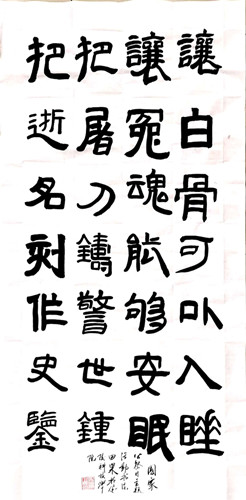 讓白骨可以入睡
讓冤魂能够安眠
把屠刀鑄警世鍾
把逝名刻作史鑒
國家